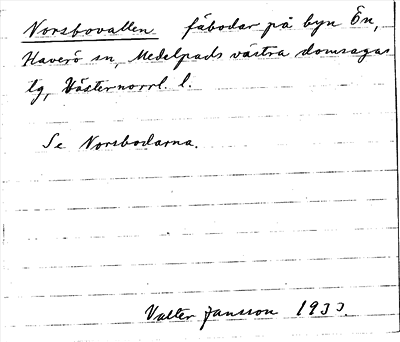 Norsbovallen fäbodar på byn Ön,
Haverö sn, Medelpads västra domsagas
lg, Västernorrl. l.
Se Norsbodarna.
Valter Jansson 1933.